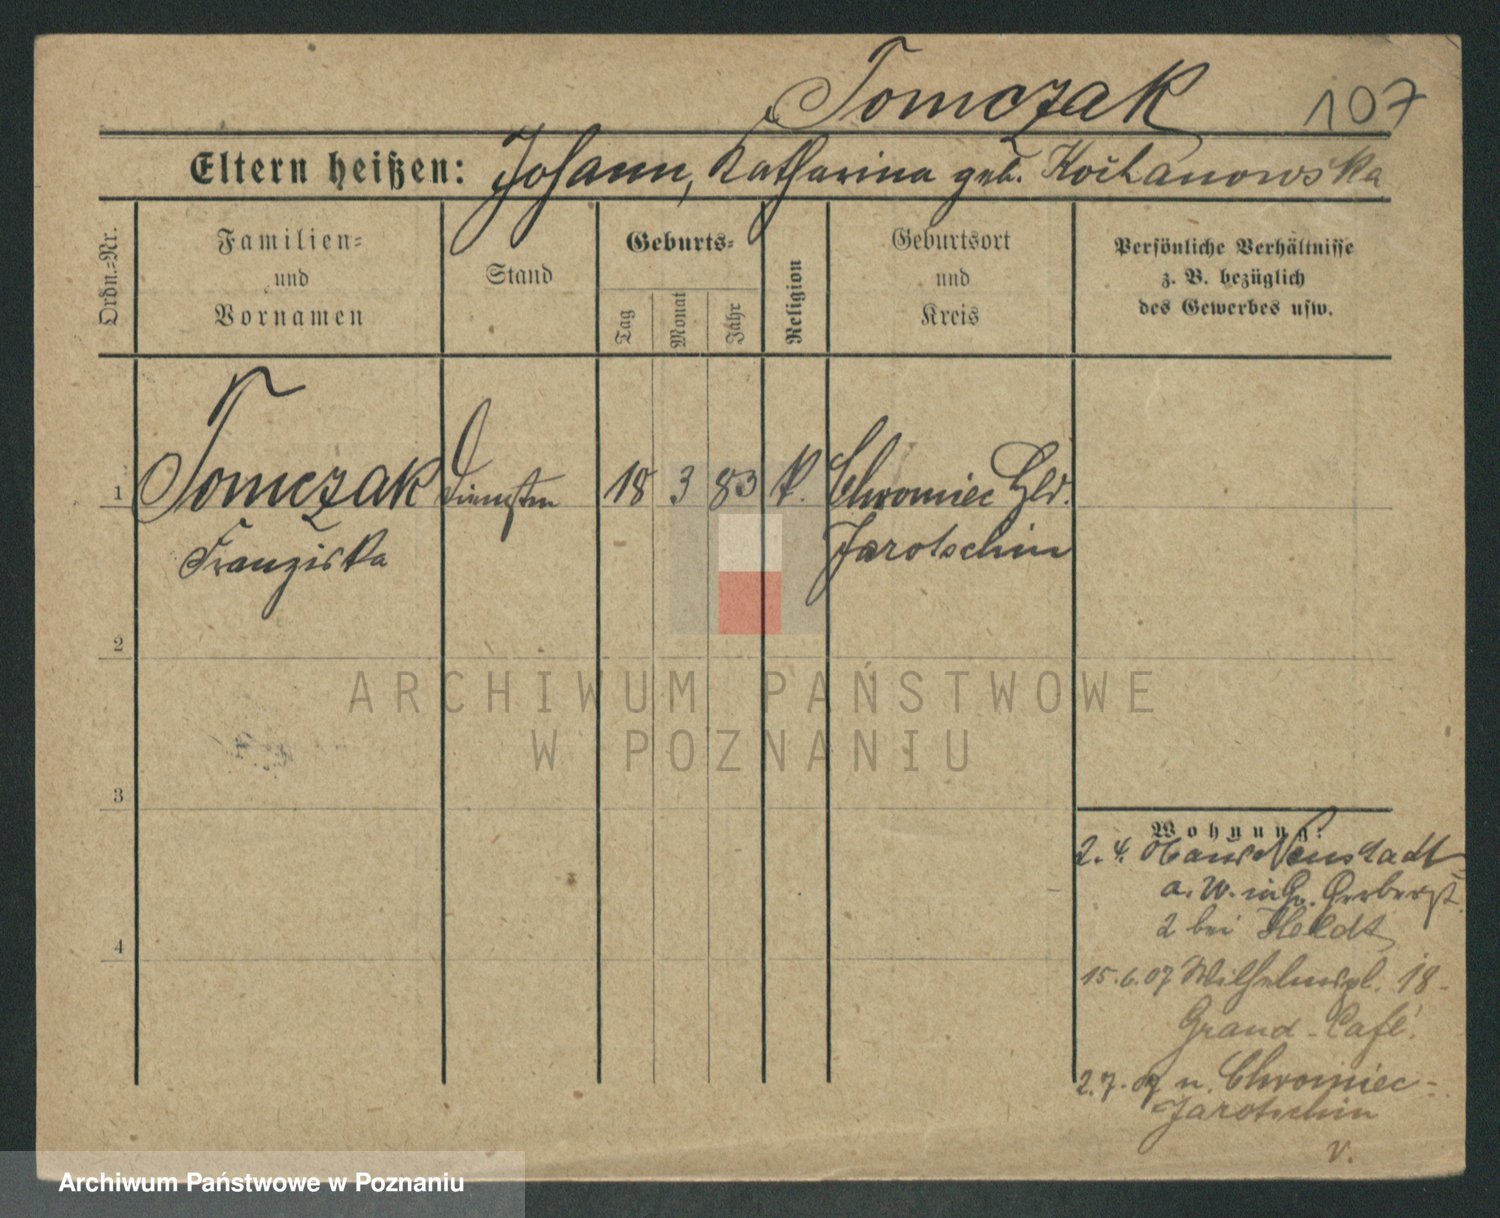 Tomczak 107
Eltern heißen: Johann, Katharina geb. Kochanowska
Ordn.=Nr.
Familien=
und
Vornamen
Stand
Geburts=
Tag
Monat
Jahr
Religion
Geburtsort
und
Kreis
Persönliche Verhältnisse
z. B. bezüglich
des Gewerbes usw.
1 Tomczak 18 3 83 K. Chromiec
Franziska Jarotschin
2
ARCHIWUM PAŃSTWOWE
W POZNANIU
3
4
Wohnung:
2. 4. 06 aus Neustadt
a. W. in Gr. Gerberst.
2 bei Heldt
15. 6. 07 Wilhelmspl. 18-
Grand-Café.
2. 7. 07 n. Chromiec-
Jarotschin
v.
Archiwum Państwowe w Poznaniu